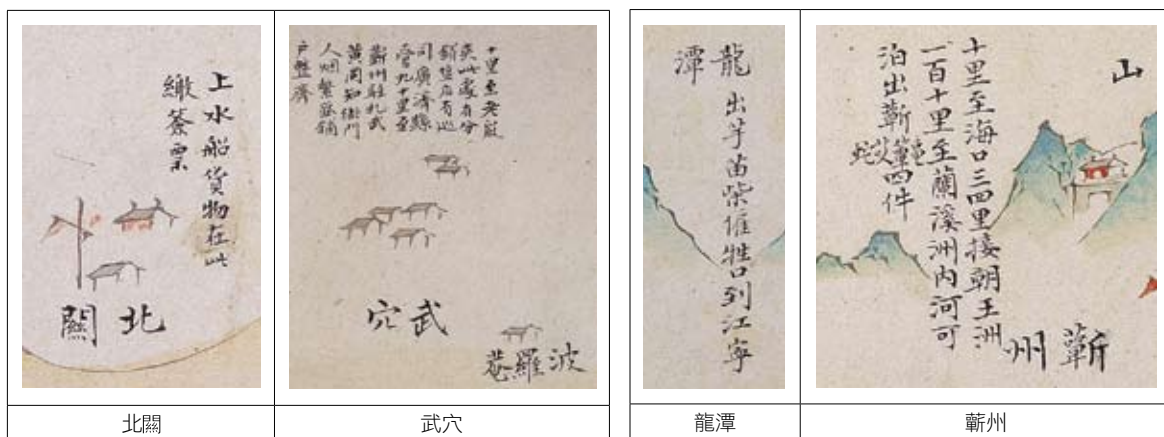 上水船貨物在此
繳簽票
北闗
十里至老廠
夾此處有分
銷鹽店有巡
司廣濟縣
管九十里至
蘄州駐扎武
黃同知衙門
人烟繁盛鋪
戶整齊
武穴
波羅菴
北闗
武穴
龍潭
出芋苗柴僱牲口到江寧
山
十里至海口三四里接朝王洲
一百十里至蘭溪洲內河可
泊出蘄龜簟艾蛇四件
蘄州
龍潭
蘄州